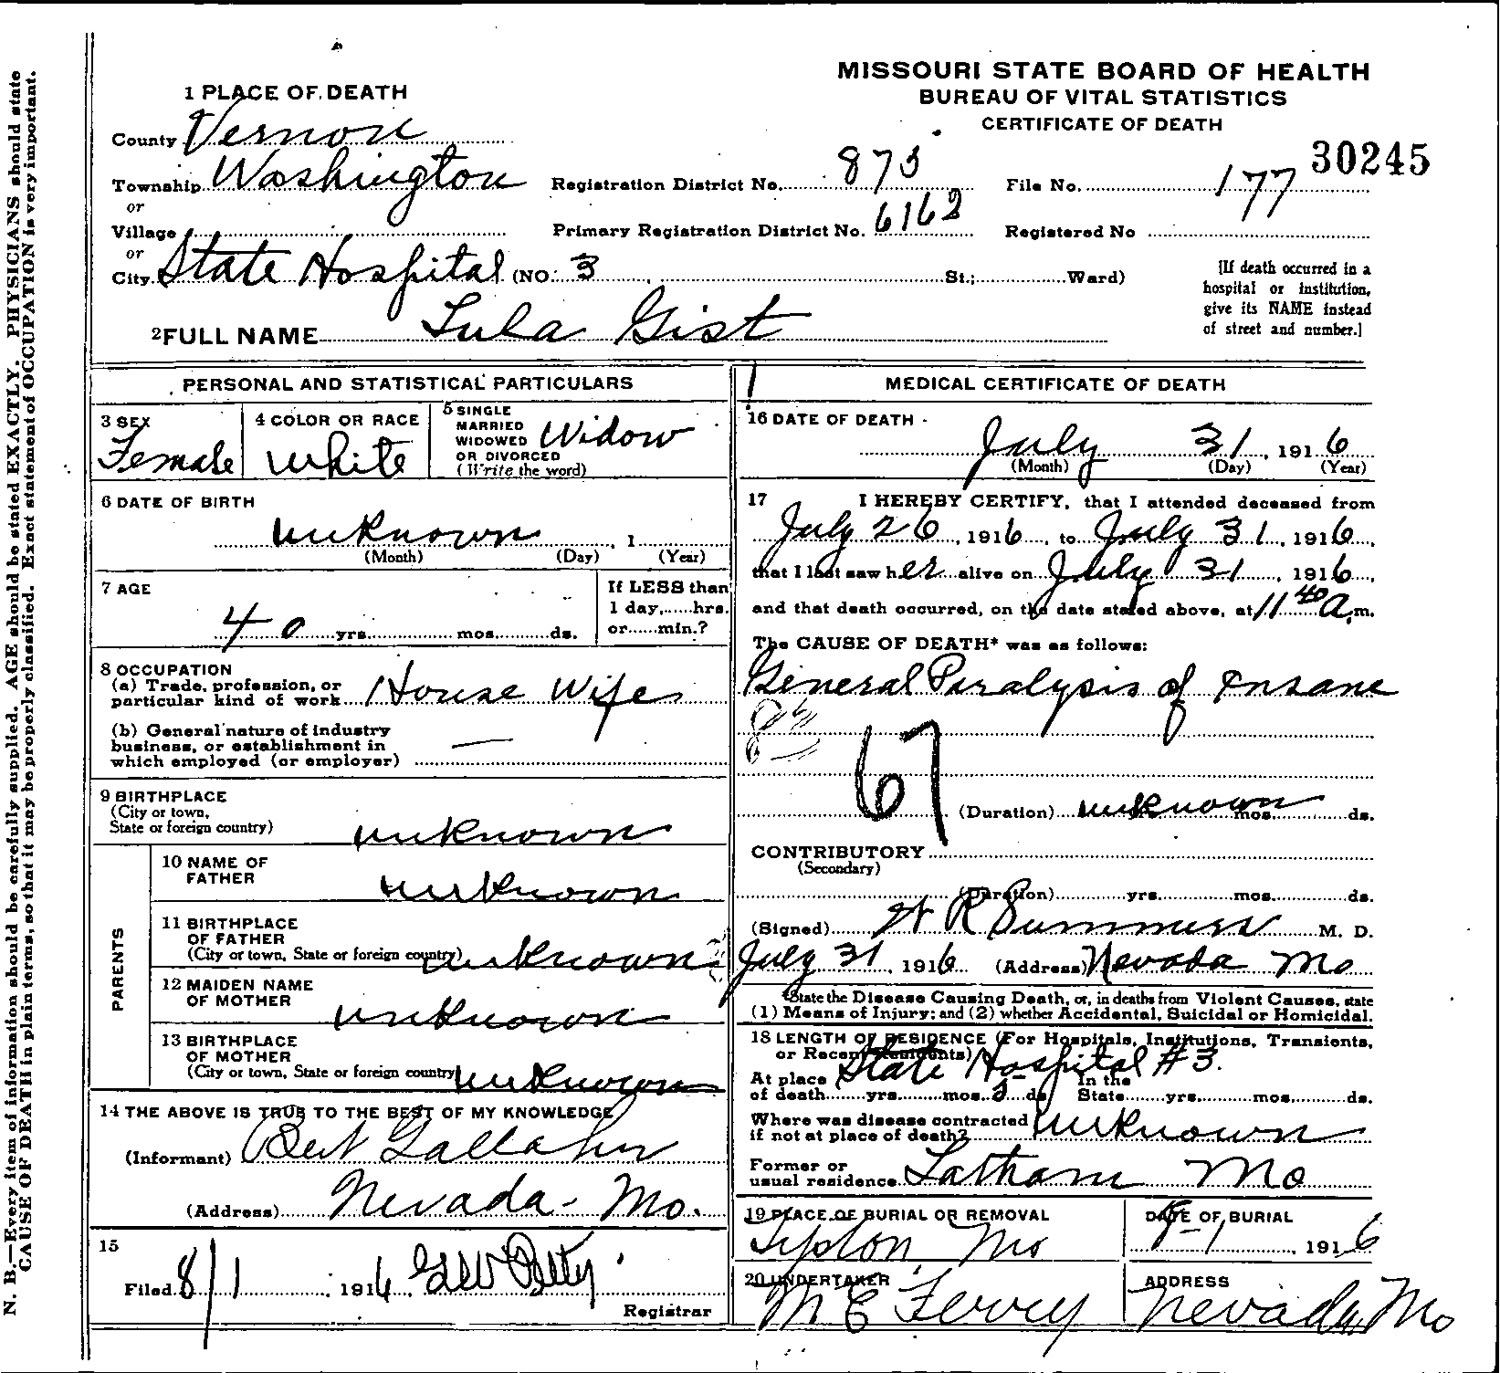 MISSOURI STATE BOARD OF HEALTH
BUREAU OF VITAL STATISTICS
CERTIFICATE OF DEATH
30245
1 PLACE OF DEATH
County Vernon
Township Washington Registration District No. 875 File No. 177
or
Village Primary Registration District No. 6162 Registered No
or
City State Hospital (NO. 3 St.; Ward)
[If death occurred in a
hospital or institution,
give its NAME instead
of street and number.]
2 FULL NAME Lula Gist
PERSONAL AND STATISTICAL PARTICULARS
3 SEX
Female
4 COLOR OR RACE
White
5 SINGLE
MARRIED
WIDOWED
OR DIVORCED
(Write the word)
Widow
6 DATE OF BIRTH
unknown , 1
(Month) (Day) (Year)
7 AGE
40 yrs. mos. ds.
If LESS than
1 day,......hrs.
or......min.?
8 OCCUPATION
(a) Trade, profession, or
particular kind of work House Wife
(b) General nature of industry
business, or establishment in
which employed (or employer) —
9 BIRTHPLACE
(City or town,
State or foreign country)
unknown
PARENTS
10 NAME OF
FATHER
unknown
11 BIRTHPLACE
OF FATHER
(City or town, State or foreign country) unknown
12 MAIDEN NAME
OF MOTHER
unknown
13 BIRTHPLACE
OF MOTHER
(City or town, State or foreign country) unknown
14 THE ABOVE IS TRUE TO THE BEST OF MY KNOWLEDGE
(Informant) Bert Gallahn
(Address) Nevada - Mo.
15
Filed 8/1 , 1916 Geo Petty
Registrar
MEDICAL CERTIFICATE OF DEATH
16 DATE OF DEATH
July 31, 1916
(Month) (Day) (Year)
17 I HEREBY CERTIFY, that I attended deceased from
July 26, 1916, to July 31, 1916,
that I last saw her alive on July 31, 1916,
and that death occurred, on the date stated above, at 11 40 a.m.
The CAUSE OF DEATH* was as follows:
General Paralysis of Insane
67
(Duration) unknown mos. ds.
CONTRIBUTORY
(Secondary)
(Duration) yrs. mos. ds.
(Signed) R Summers M. D.
July 31, 1916 (Address) Nevada Mo
*State the Disease Causing Death, or, in deaths from Violent Causes, state
(1) Means of Injury; and (2) whether Accidental, Suicidal or Homicidal.
18 LENGTH OF RESIDENCE (For Hospitals, Institutions, Transients,
or Recent Residents) State Hospital #3.
At place In the
of death yrs. mos. 5 ds. State yrs. mos. ds.
Where was disease contracted
if not at place of death? unknown
Former or
usual residence Latham Mo
19 PLACE OF BURIAL OR REMOVAL
Tipton, Mo
DATE OF BURIAL
8-1, 1916
20 UNDERTAKER
M E Ferry
ADDRESS
Nevada, Mo
N. B.—Every item of information should be carefully supplied. AGE should be stated EXACTLY. PHYSICIANS should state
CAUSE OF DEATH in plain terms, so that it may be properly classified. Exact statement of OCCUPATION is very important.